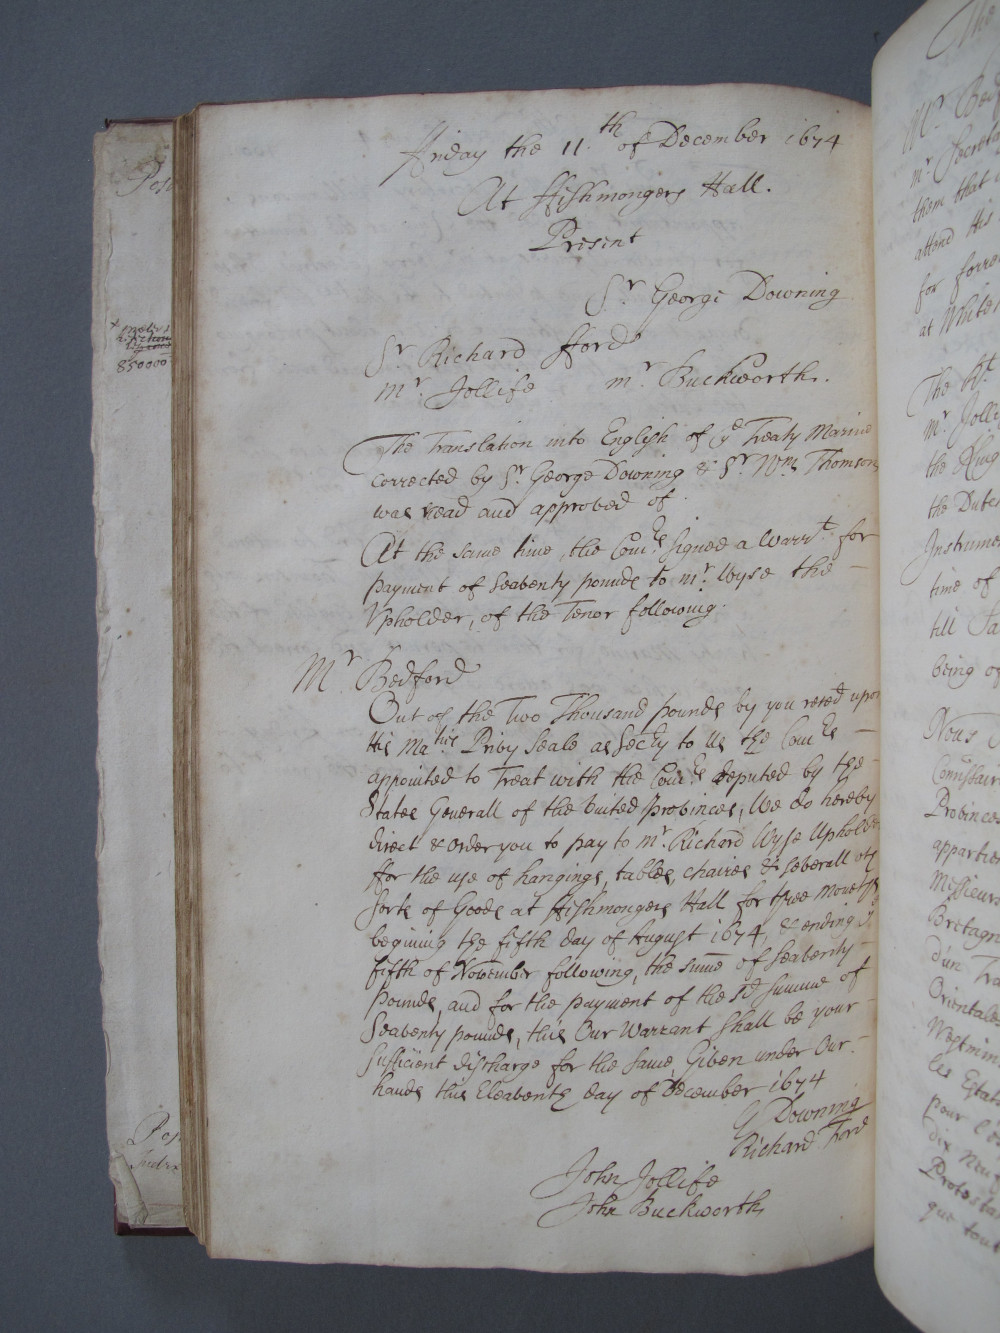 Friday the 11th of December 1674
At ffishmongers Hall.
Present
Sr George Downing
Sr Richard fford
mr Jollife mr Buckworth.
The Translation into English of ye Treaty Marine
corrected by Sr George Downing & Sr Wm Thomson,
was read and approved of
At the same time the Comrs signed a Warrt for
payment of Seaventy pounds to mr Wyse the
Upholder, of the Tenor following.
Mr Bedford
Out of the Two Thousand pounds by you reced upon
His Maties Privy Seale as Secry to Us the Comrs
appointed to Treat with the Comrs deputed by the
States Generall of the United Provinces, We do hereby
direct & order you to pay to mr Richard Wyse Upholder
ffor the use of hangings, tables, chaires & severall othr
sorts of Goods at ffishmongers Hall for three moneths
begining the fifth day of August 1674, & ending ye
fifth of November following, the sume of Seaventy
Pounds, and for the payment of the sd summe of
Seaventy pounds, this Our Warrant shall be your
sufficient discharge for the same, Given under Our
hands this Eleaventh day of December 1674
G Downing
Richard Ford
John Jollife
John Buckworth
850000
The
Mr Bed
mr Secret
them that
attend His
for forra
at White
The Rt
mr Jolli
the King
the Dutch
Instrume
time of
till Ja
being of
Nous
Commissair
Provinces
appartien
Messieurs
Bretagne
d'un Tra
Orientale
Westmin
les Estats
pour l'e
dix neuf
Protesta
que tous